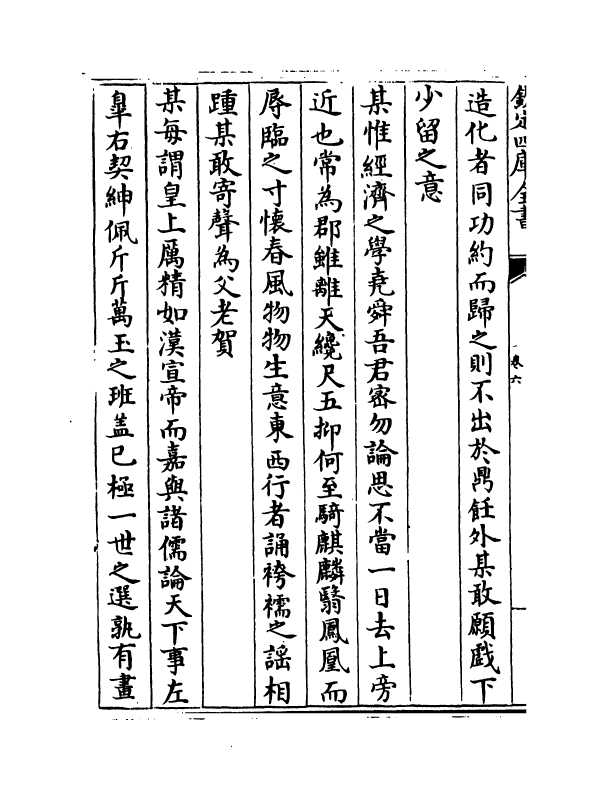 欽定四庫全書
卷六
造化者同功約而歸之則不出於鼎飪外某敢願戲下
少留之意
某惟經濟之學堯舜吾君密勿論思不當一日去上旁
近也常為郡雖離天纔尺五抑何至騎麒麟翳鳳凰而
辱臨之寸懷春風物物生意東西行者誦袴襦之謡相
踵某敢寄聲為父老賀
某每謂皇上厲精如漢宣帝而嘉與諸儒論天下事左
臯右契紳佩斤斤萬玉之班盖已極一世之選孰有畫